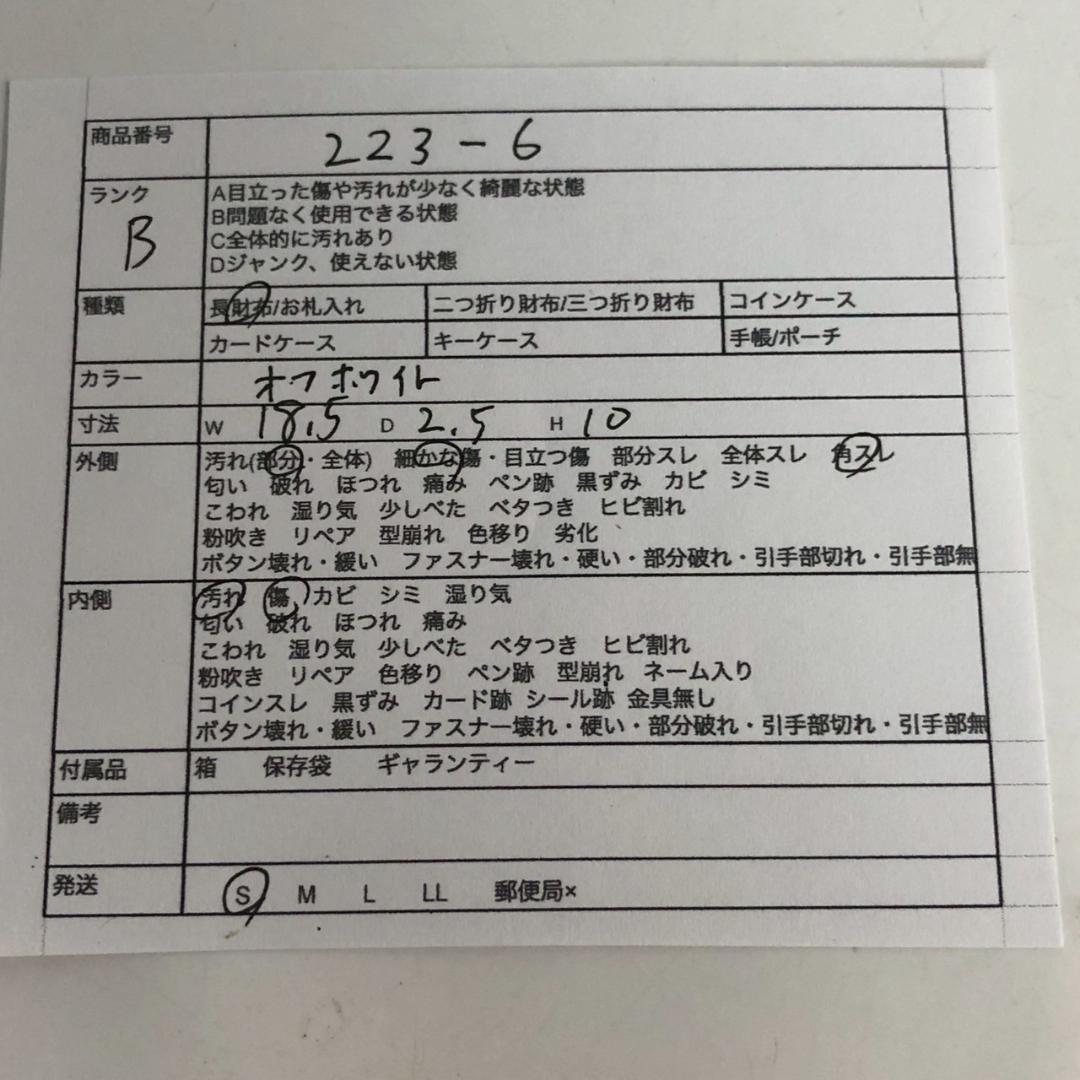 商品番号 223-6
ランク B
A目立った傷や汚れが少なく綺麗な状態
B問題なく使用できる状態
C全体的に汚れあり
Dジャンク、使えない状態
種類 長財布/お札入れ 二つ折り財布/三つ折り財布 コインケース
カードケース キーケース 手帳/ポーチ
カラー オフホワイト
寸法 W 18.5 D 2.5 H 10
外側 汚れ(部分・全体) 細かな傷・目立つ傷 部分スレ 全体スレ 角スレ
匂い 破れ ほつれ 痛み ペン跡 黒ずみ カビ シミ
こわれ 湿り気 少しべた ベタつき ヒビ割れ
粉吹き リペア 型崩れ 色移り 劣化
ボタン壊れ・緩い ファスナー壊れ・硬い・部分破れ・引手部切れ・引手部無
内側 汚れ 傷 カビ シミ 湿り気
匂い 破れ ほつれ 痛み
こわれ 湿り気 少しべた ベタつき ヒビ割れ
粉吹き リペア 色移り ペン跡 型崩れ ネーム入り
コインスレ 黒ずみ カード跡 シール跡 金具無し
ボタン壊れ・緩い ファスナー壊れ・硬い・部分破れ・引手部切れ・引手部無
付属品 箱 保存袋 ギャランティー
備考
発送 S M L LL 郵便局×